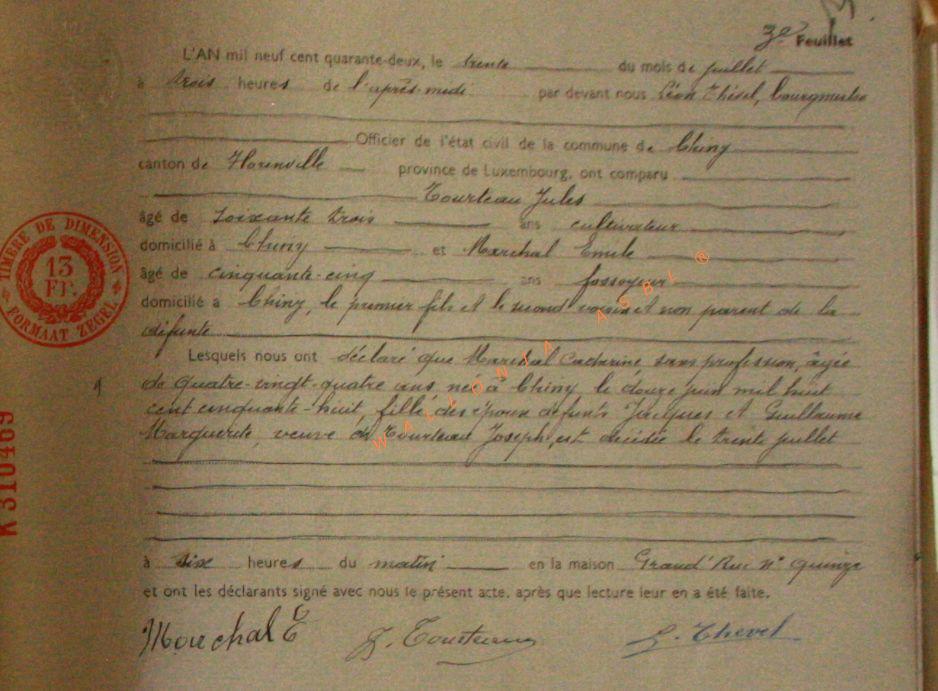 3e Feuillet
L'AN mil neuf cent quarante-deux, le trente du mois de juillet
à trois heures de l'après-midi par devant nous Léon Thével, bourgmestre
Officier de l'état civil de la commune de Chiny
canton de Florenville province de Luxembourg, ont comparu
Tourteau Jules
âgé de soixante trois ans cultivateur
domicilié à Chiny et Maréchal Emile
âgé de cinquante-cinq ans fossoyeur
domicilié à Chiny, le premier fils et le second voisin et non parent de la
défunte
Lesquels nous ont déclaré que Maréchal Catherine sans profession, âgée
de quatre-vingt-quatre ans née à Chiny le douze juin mil huit
cent cinquante-huit, fille des époux défunts Jacques et Guillaume
Marguerite, veuve de Tourteau Joseph, est décédée le trente juillet
à six heures du matin en la maison Grand'Rue N° quinze
et ont les déclarants signé avec nous le présent acte, après que lecture leur en a été faite.
Marechal E J. Tourteau L. Thével
TIMBRE DE DIMENSION
13
FR.
FORMAAT ZEGEL
K 310469
WALLONIA ASBL ®